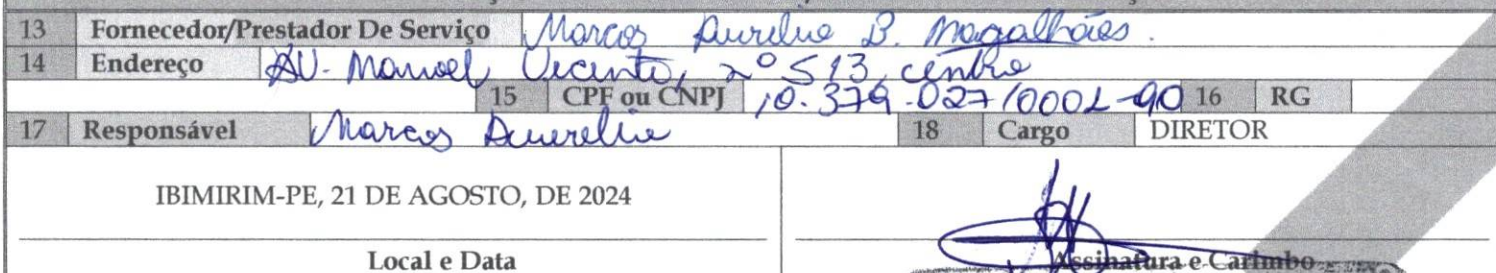 13 Fornecedor/Prestador De Serviço Marcos Aurelio B. Magalhães.
14 Endereço AV. Manoel Vicente, nº 513, centro
15 CPF ou CNPJ 10.379.027/0001-90 16 RG
17 Responsável Marcos Aurelio 18 Cargo DIRETOR
IBIMIRIM-PE, 21 DE AGOSTO, DE 2024
Local e Data Assinatura e Carimbo